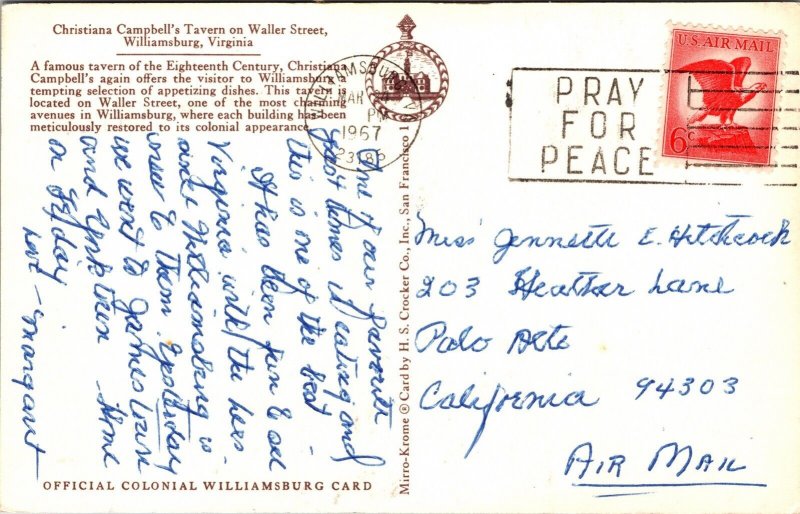 Christiana Campbell's Tavern on Waller Street,
Williamsburg, Virginia
A famous tavern of the Eighteenth Century, Christiana
Campbell's again offers the visitor to Williamsburg a
tempting selection of appetizing dishes. This tavern is
located on Waller Street, one of the most charming
avenues in Williamsburg, where each building has been
meticulously restored to its colonial appearance.
One of our favorite
past times is eating and
this is one of the best -
It has been fun to see
Virginia with the
and Williamsburg is
new to them. Yesterday
we went to Jamestown
and Yorktown - Home
on Friday
Love - Margaret
OFFICIAL COLONIAL WILLIAMSBURG CARD
Mirro-Krome ® Card by H. S. Crocker Co., Inc., San Francisco 1
WILLIAMSBURG
MAR
PM
1967
23185
PRAY
FOR
PEACE
U.S. AIR MAIL
6c
Miss Jennette E. Hitchcock
203 Heather Lane
Palo Alto
California 94303
AIR MAIL